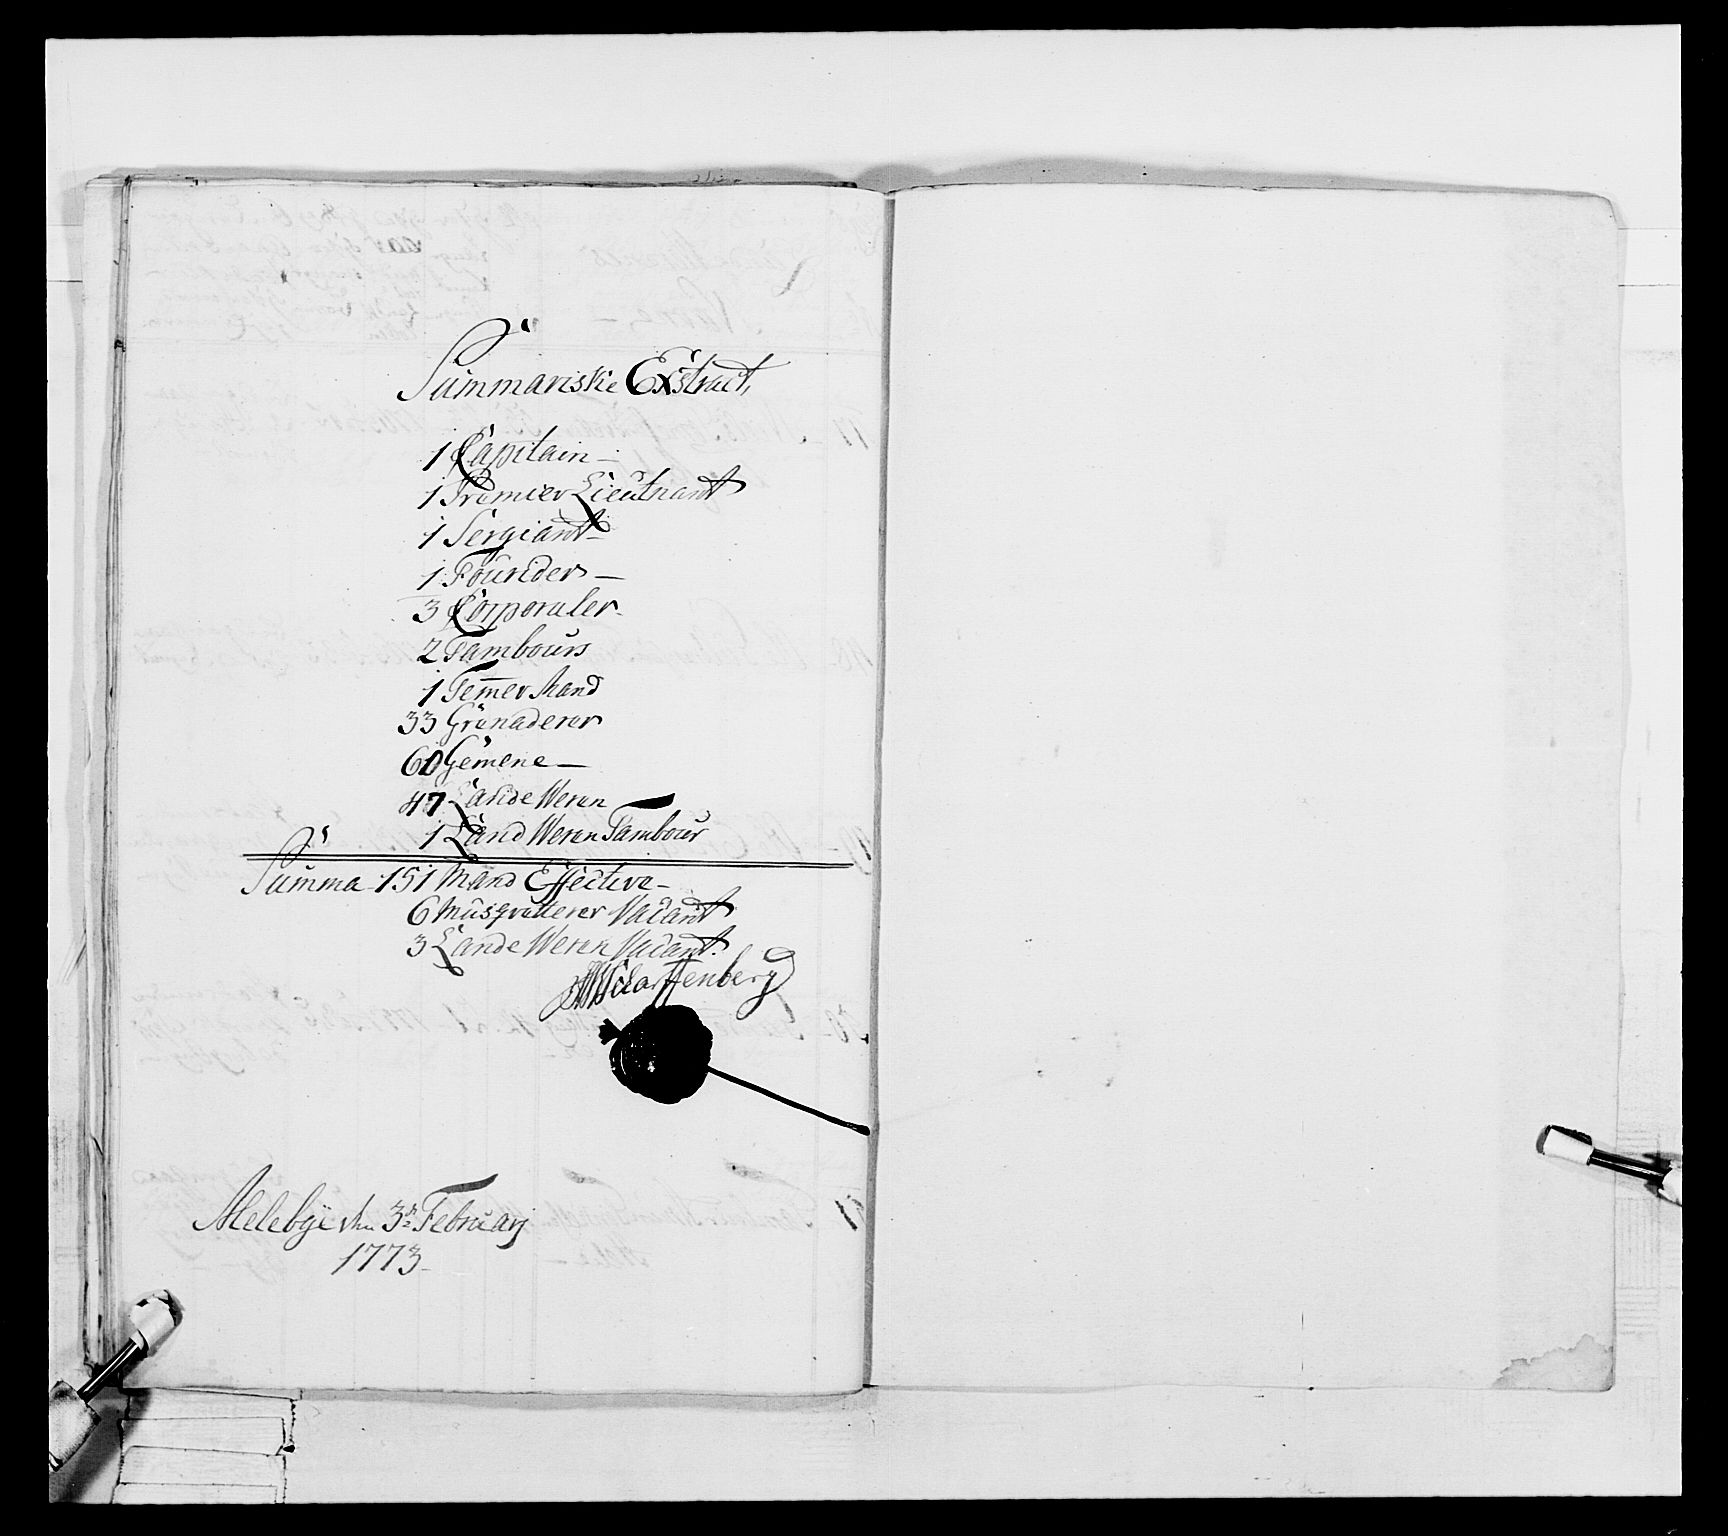 Summariske Exstract,
1 Capitain –
1 Premier Lieutnant
1 Sergiant –
1 Fourider –
3 Corporaler –
2 Tambours
1 Temmer Mand
33 Grenaderer
60 Gemene –
47 Lande Weren
1 Land Weren Tambour
Summa 151 Mand Effective –
6 Musqvetterer Vacant
3 Lande Weren Vacant.
Scharffenberg
Melebye den 3d Februarj
1773 –